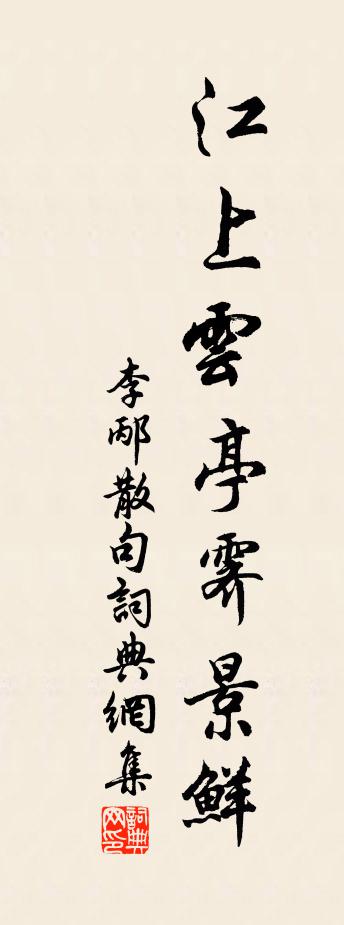 江上雲亭霽景鮮
李邴散句詞典網集
詞典網印